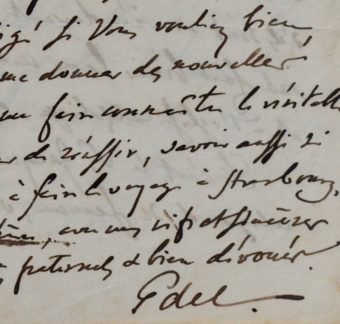 igé si Vous vouliez bien,
me donner des nouvelles
me faire connaître le véritable
de réussir, savoir aussi si
à faire le voyage à Strasbourg,
avec mes vifs et sincères
paternels & bien dévoués.
Edel.